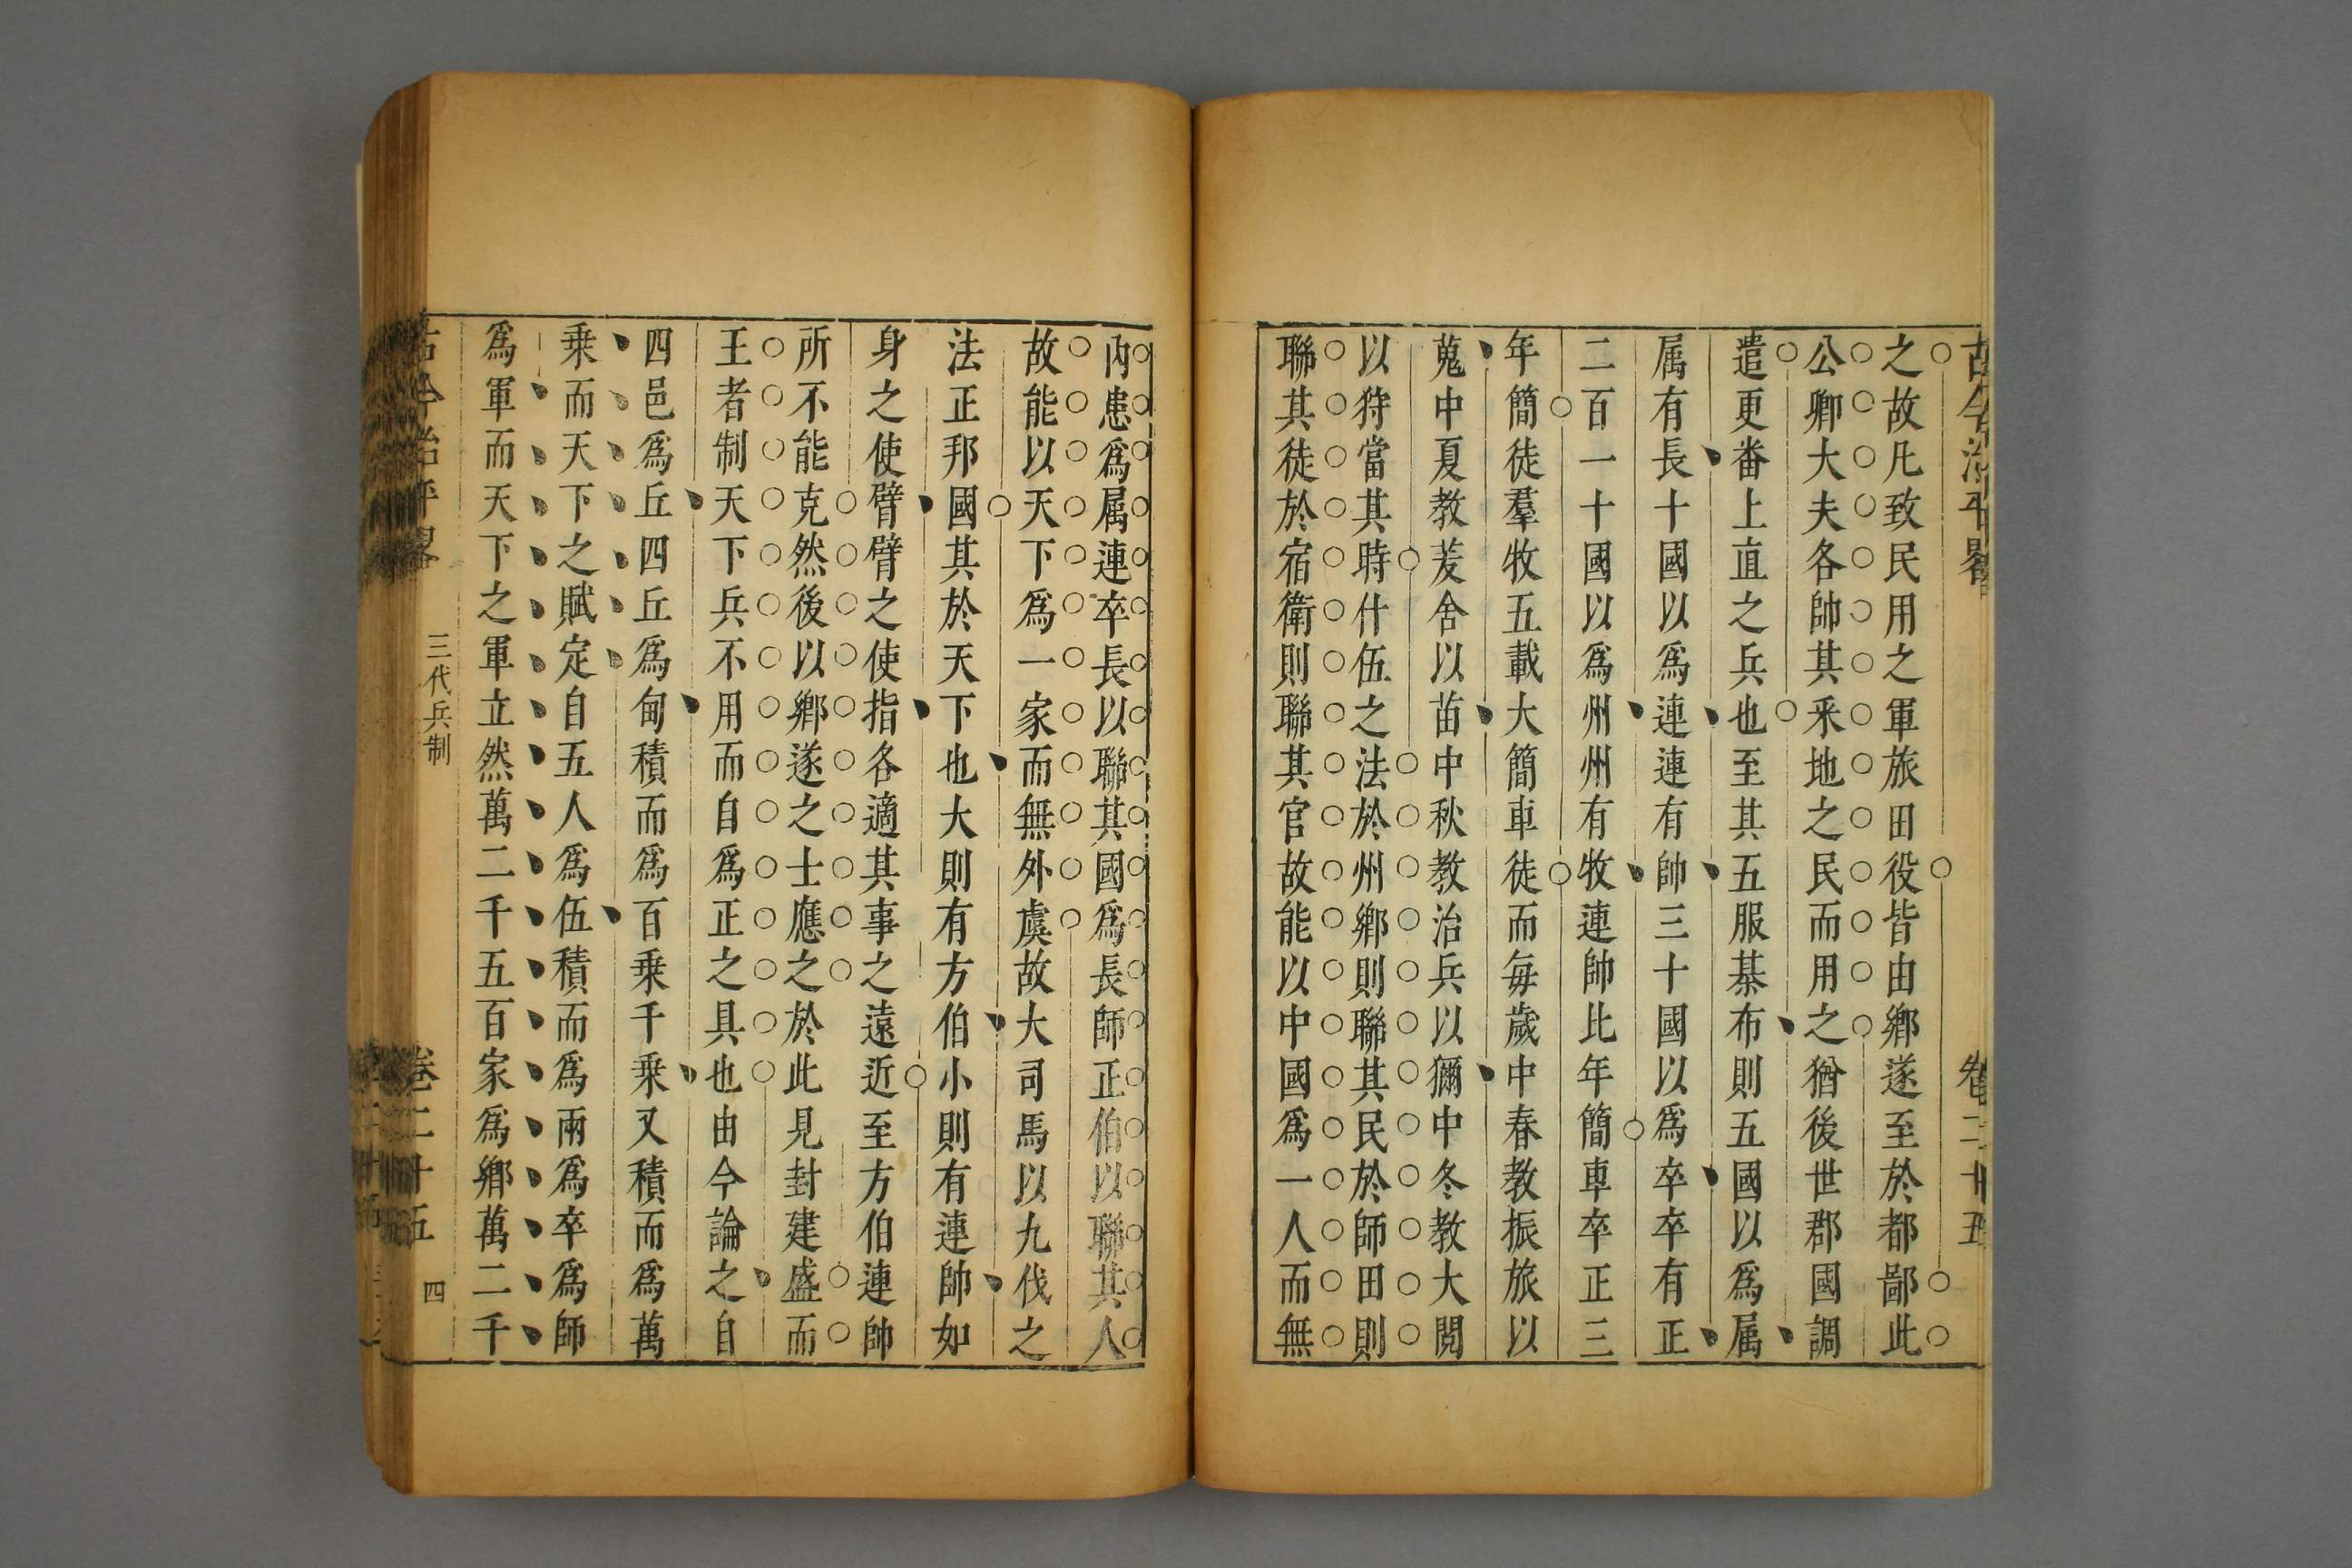 古今治平畧　卷二十五
之故凡致民用之軍旅田役皆由鄉遂至於都鄙此
公卿大夫各帥其采地之民而用之猶後世郡國調
遣更番上直之兵也至其五服棊布則五國以爲属
属有長十國以爲連連有帥三十國以爲卒卒有正
二百一十國以爲州州有牧連帥比年簡車卒正三
年簡徒羣牧五載大簡車徒而每歲中春教振旅以
蒐中夏教茇舍以苗中秋教治兵以獮中冬教大閱
以狩當其時什伍之法於州鄉則聯其民於師田則
聯其徒於宿衛則聯其官故能以中國爲一人而無
內患爲属連卒長以聯其國爲長師正伯以聯其人
故能以天下爲一家而無外虞故大司馬以九伐之
法正邦國其於天下也大則有方伯小則有連帥如
身之使臂臂之使指各適其事之遠近至方伯連帥
所不能克然後以鄉遂之士應之於此見封建盛而
王者制天下兵不用而自爲正之具也由今論之自
四邑爲丘四丘爲甸積而爲百乗千乗又積而爲萬
乗而天下之賦定自五人爲伍積而爲兩爲卒爲師
爲軍而天下之軍立然萬二千五百家爲鄉萬二千
古今治平畧　三代兵制　卷二十五　四